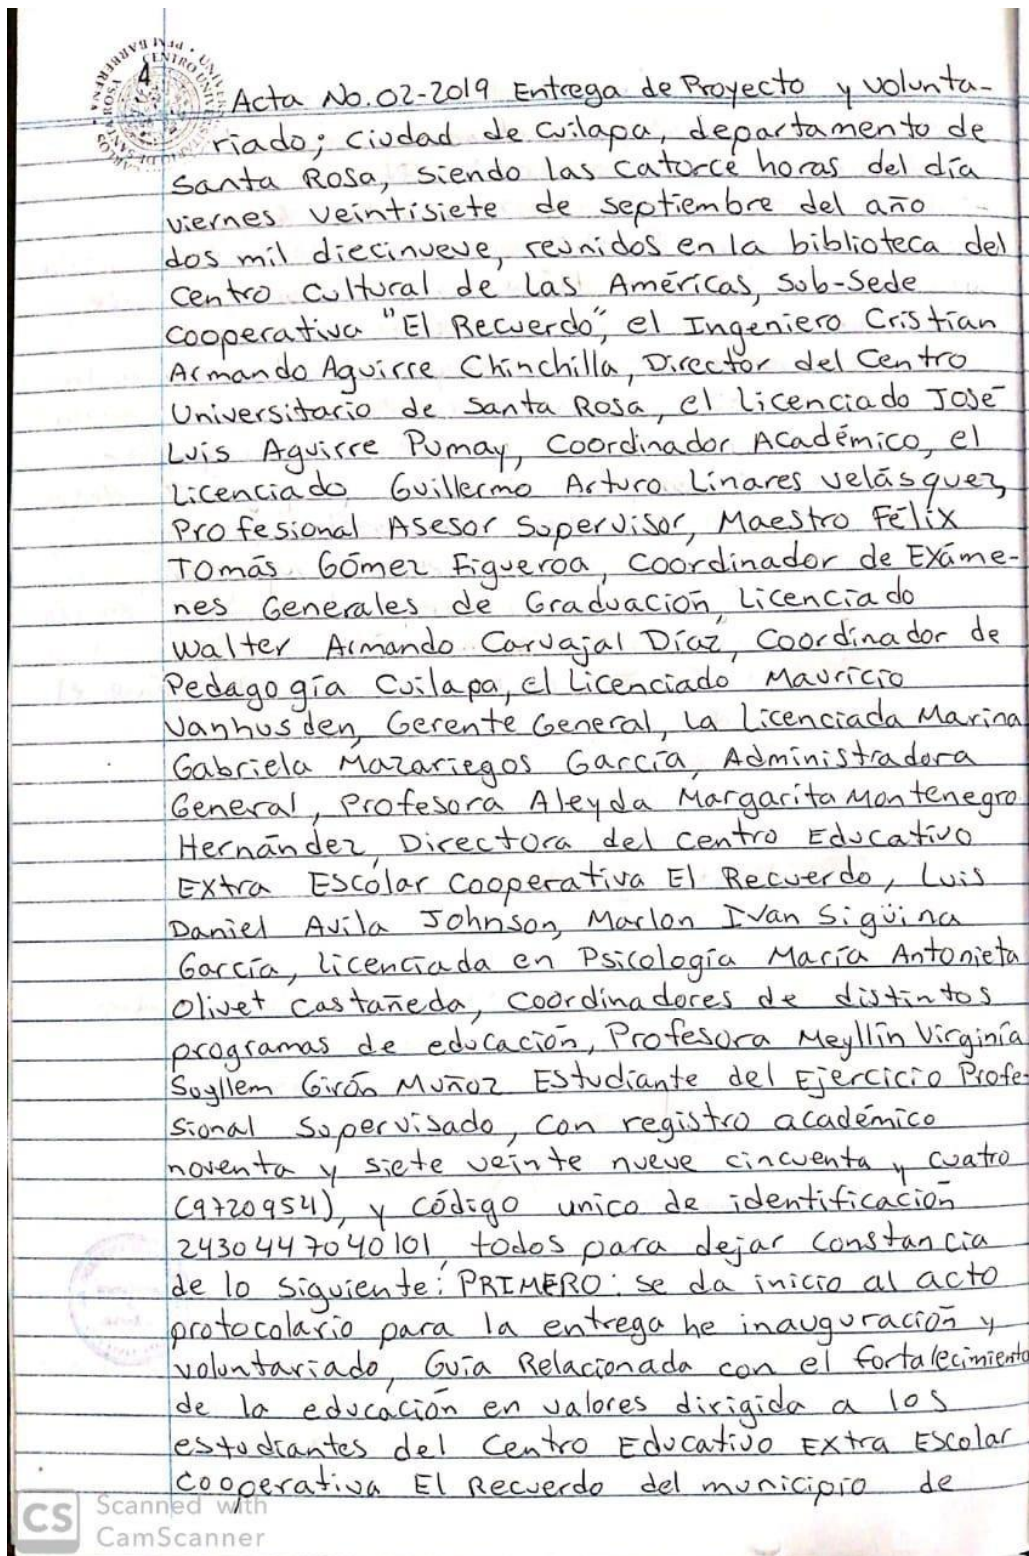 4
CENTRO
Acta No.02-2019 Entrega de Proyecto y volunta-
riado; Ciudad de Cuilapa, departamento de
Santa Rosa, siendo las catorce horas del día
viernes veintisiete de septiembre del año
dos mil diecinueve, reunidos en la biblioteca del
Centro Cultural de Las Américas, Sub-Sede
Cooperativa "El Recuerdo", el Ingeniero Cristian
Armando Aguirre Chinchilla, Director del Centro
Universitario de Santa Rosa, el Licenciado José
Luis Aguirre Pumay, Coordinador Académico, el
Licenciado Guillermo Arturo Linares Velásquez,
Profesional Asesor Supervisor, Maestro Félix
Tomás Gómez Figueroa, Coordinador de Exáme-
nes Generales de Graduación, Licenciado
Walter Armando Carvajal Díaz, Coordinador de
Pedagogía Cuilapa, el Licenciado Mauricio
Vanhusden, Gerente General, La Licenciada Marina
Gabriela Mazariegos García, Administradora
General, Profesora Aleyda Margarita Montenegro
Hernández, Directora del Centro Educativo
Extra Escolar Cooperativa El Recuerdo, Luis
Daniel Avila Johnson, Marlon Ivan Sigüina
García, Licenciada en Psicología María Antonieta
Olivet Castañeda, Coordinadores de distintos
programas de educación, Profesora Meyllin Virginia
Soyllem Girón Muñoz Estudiante del Ejercicio Profe-
sional Supervisado, con registro académico
noventa y siete veinte nueve cincuenta y cuatro
(9720954), y Código unico de identificación
2430447040101, todos para dejar constancia
de lo siguiente: PRIMERO: se da inicio al acto
protocolario para la entrega he inauguración y
voluntariado, Guía Relacionada con el fortalecimiento
de la educación en valores dirigida a los
estudiantes del Centro Educativo Extra Escolar
Cooperativa El Recuerdo del municipio de
CS Scanned with
CamScanner